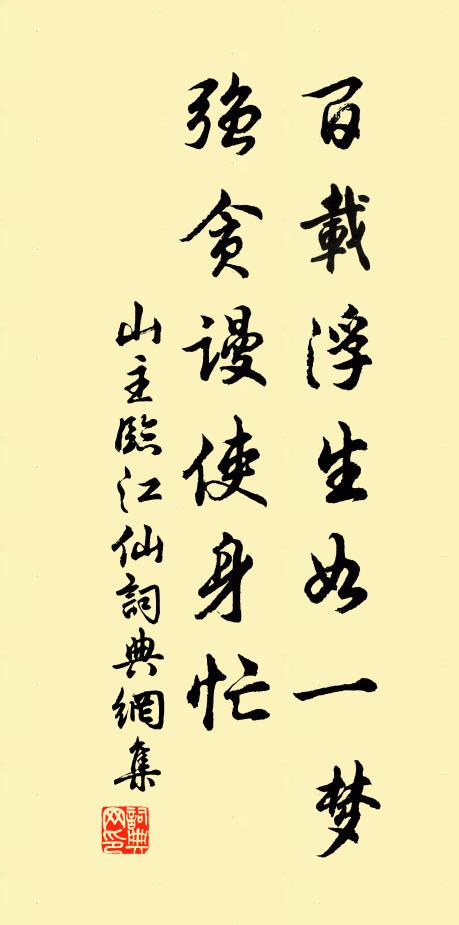 百載浮生如一梦
强贪謾使身忙
山主臨江仙詞典網集
詞典网印